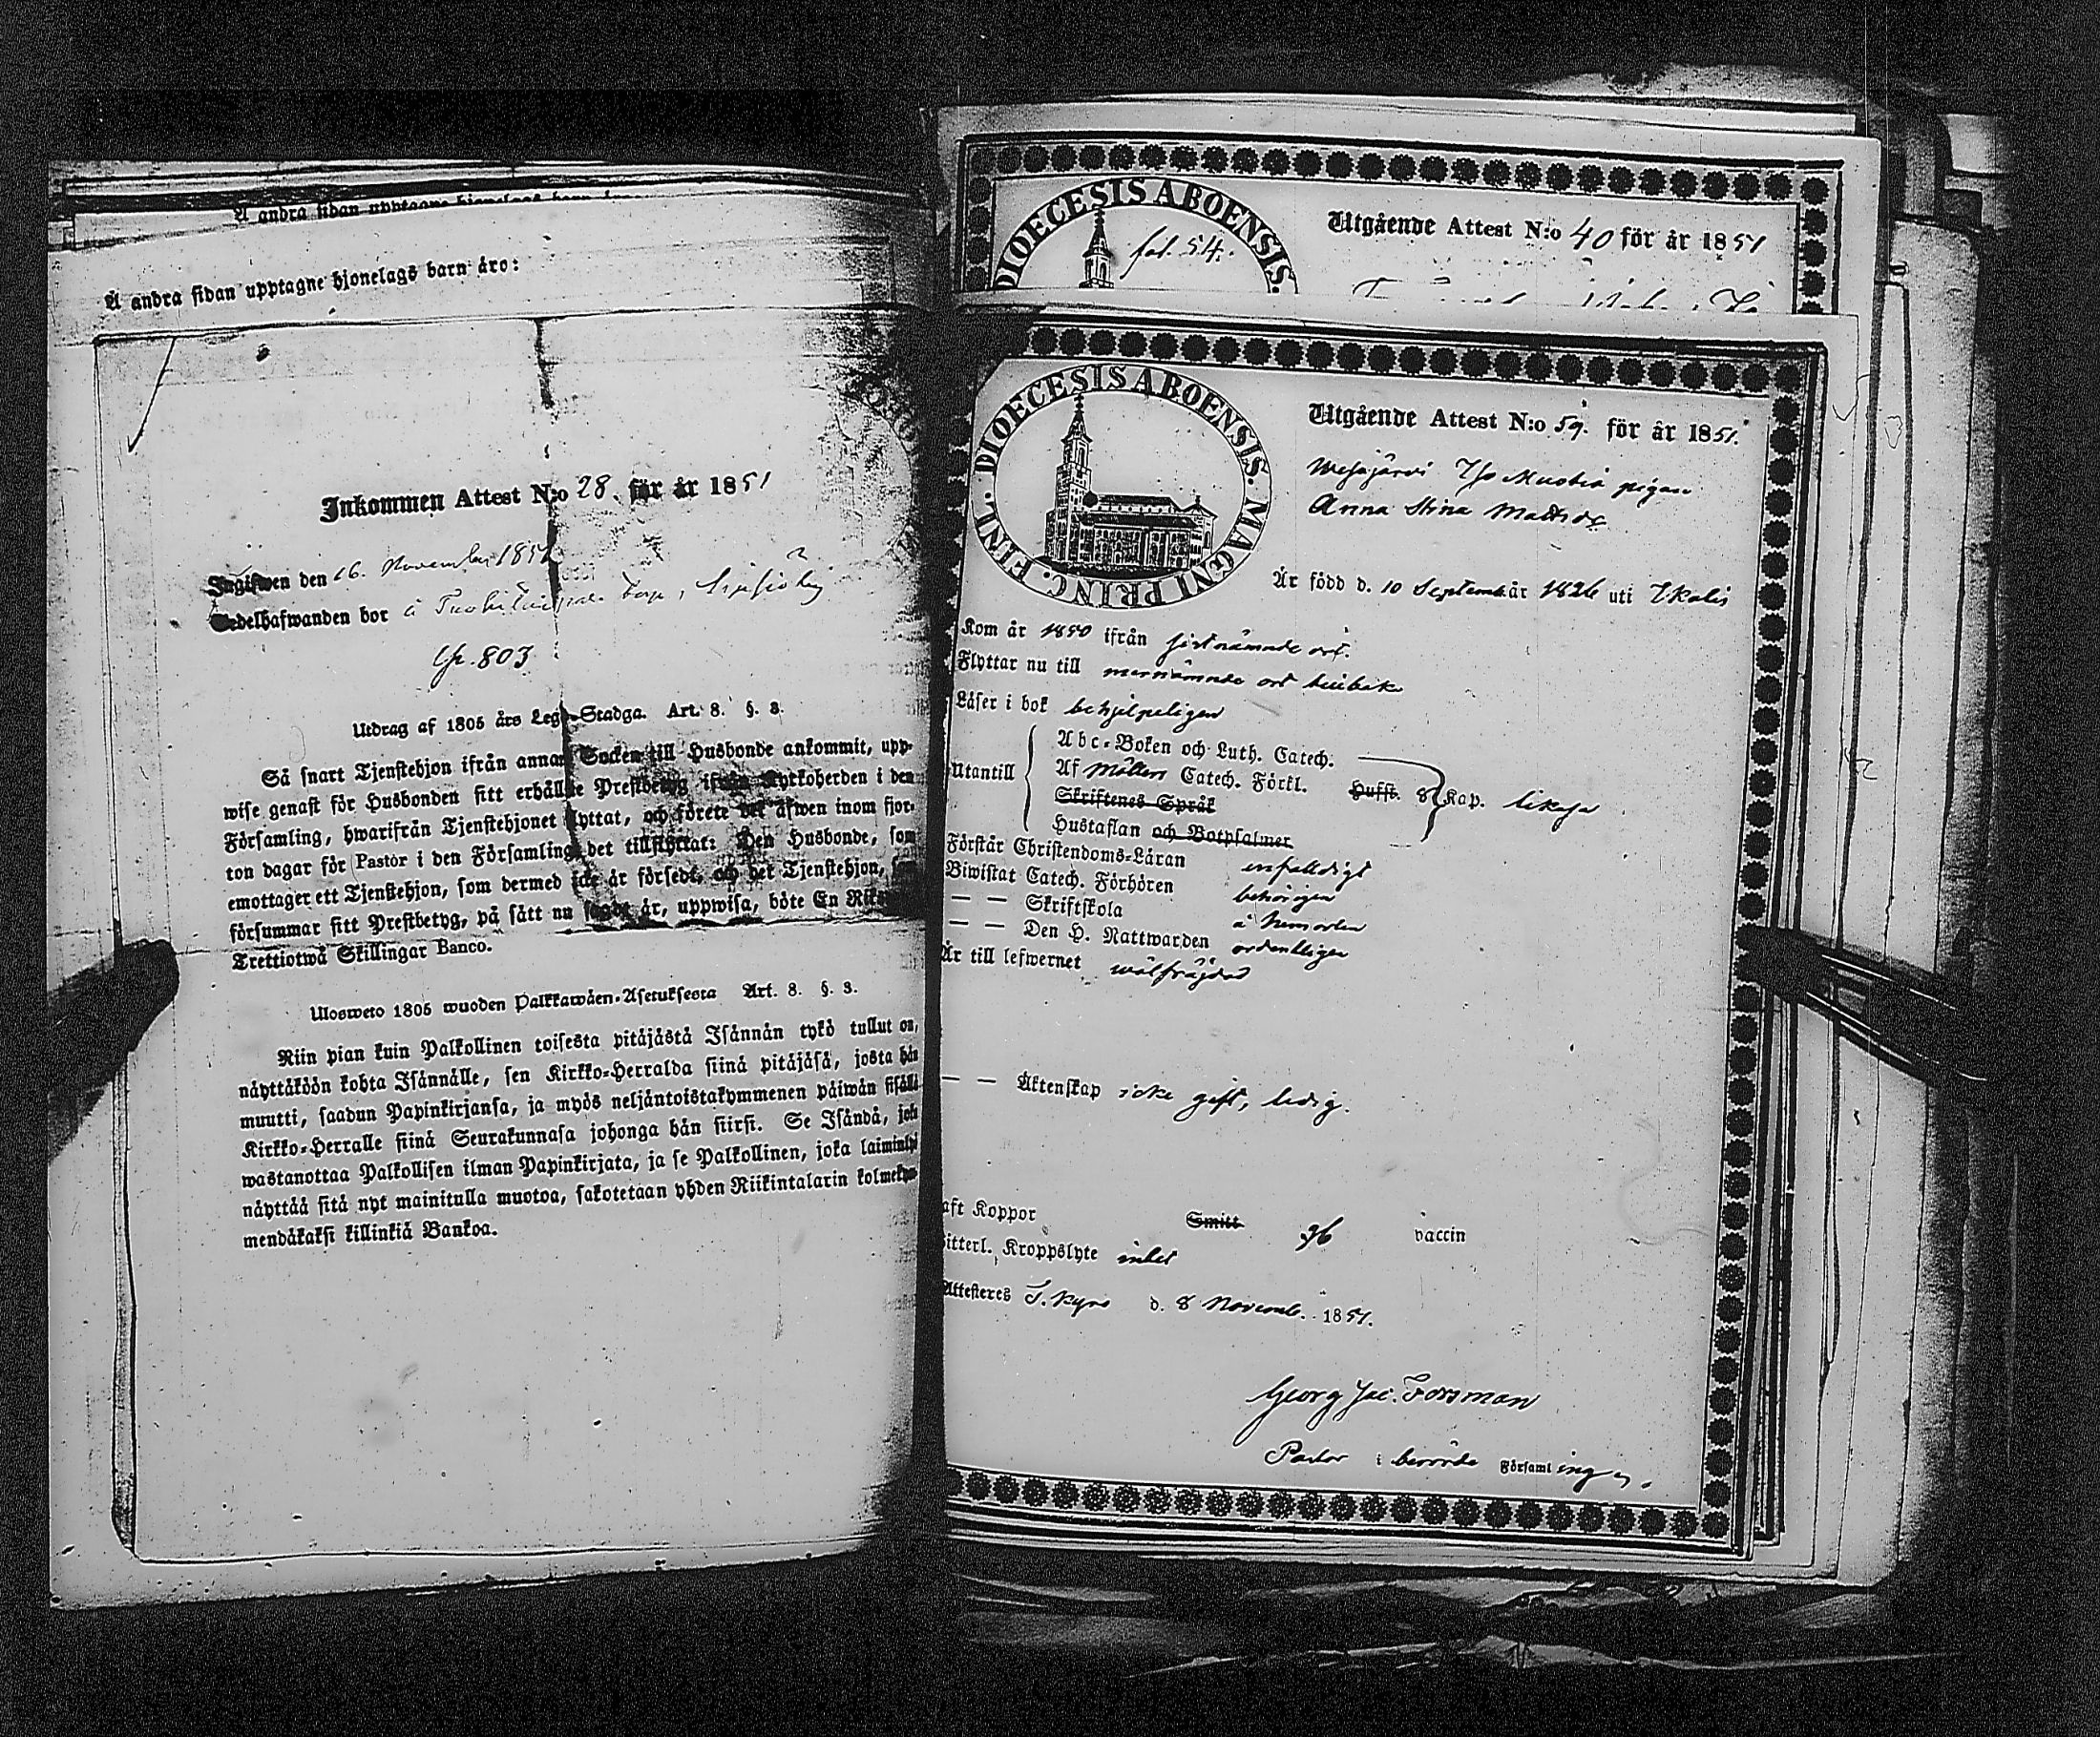 Å andra sidan upptagne hjonelags barn äro:
Inkommen Attest N:o 28. för år 1851
Ingifwen den 16. November 1851
Sedelhafwanden bor å
803
Utdrag af 1805 års Lego-Stadga. Art. 8. §. 3.
Så snart Tjenstehjon ifrån annan Socken till Husbonde ankommit, upp-
wise genast för Husbonden sitt erhållne Prestbetyg ifrån Kyrkoherden i den
Församling, hwarifrån Tjenstehjonet flyttat, och förete det äfwen inom fjor-
ton dagar för Pastor i den Församling det tillflyttat: Den Husbonde, som
emottager ett Tjenstehjon, som dermed icke är försedt, och det Tjenstehjon, som
försummar sitt Prestbetyg, på sätt nu sagdt är, uppwisa, böte En Riks
Trettiotwå Skillingar Banco.
Ulosweto 1805 wuoden Palkkawäen-Asetuksesta Art. 8. §. 3.
Niin pian kuin Palkollinen toisesta pitäjästä Isännän tykö tullut on,
näyttäköön kohta Isännälle, sen Kirkko-Herralda siinä pitäjäsä, josta hän
muutti, saadun Papinkirjansa, ja myös neljäntoistakymmenen päiwän sisällä
Kirkko-Herralle siinä Seurakunnasa johonga hän siirsi. Se Isändä, joka
wastanottaa Palkollisen ilman Papinkirjata, ja se Palkollinen, joka laiminlyö
näyttää sitä nyt mainitulla muotoa, sakotetaan yhden Riikintalarin kolmekym-
mendäkaksi killinkiä Bankoa.
DIOECESIS ABOENSIS.
fol. 54.
Utgående Attest N:o 40 för år 1851
DIOECESIS ABOENSIS. MAGNI PRINC. FINL.
Utgående Attest N:o 59. för år 1851.
pigan
Anna Stina Mattsdr
Är född d. 10 September år 1826 uti Ikalis
Kom år 1850 ifrån sistnämnde ort.
Flyttar nu till ort tillbaka
Läser i bok behjelpeligen
Abc-Boken och Luth. Catech.
Utantill Af Möllers Catech. Förkl. Hufst. 8 Kap. likaså
Skriftenes Språk
Hustaflan och Botpsalmer
Förstår Christendoms-Läran enfaldigt
Biwistat Catech. Förhören behörigen
— — Skriftskola å hemorten
— — Den H. Nattwarden ordentligen
Är till lefwernet wälfrägdad
— — Äktenskap icke gift, ledig.
aft Koppor Smitt vaccin
itterl. Kroppslyte intet
Attesteres T. Kyro d. 8 Novemb. 1851.
Georg Jac. Forsman
Pastor i berörde Församlingen.